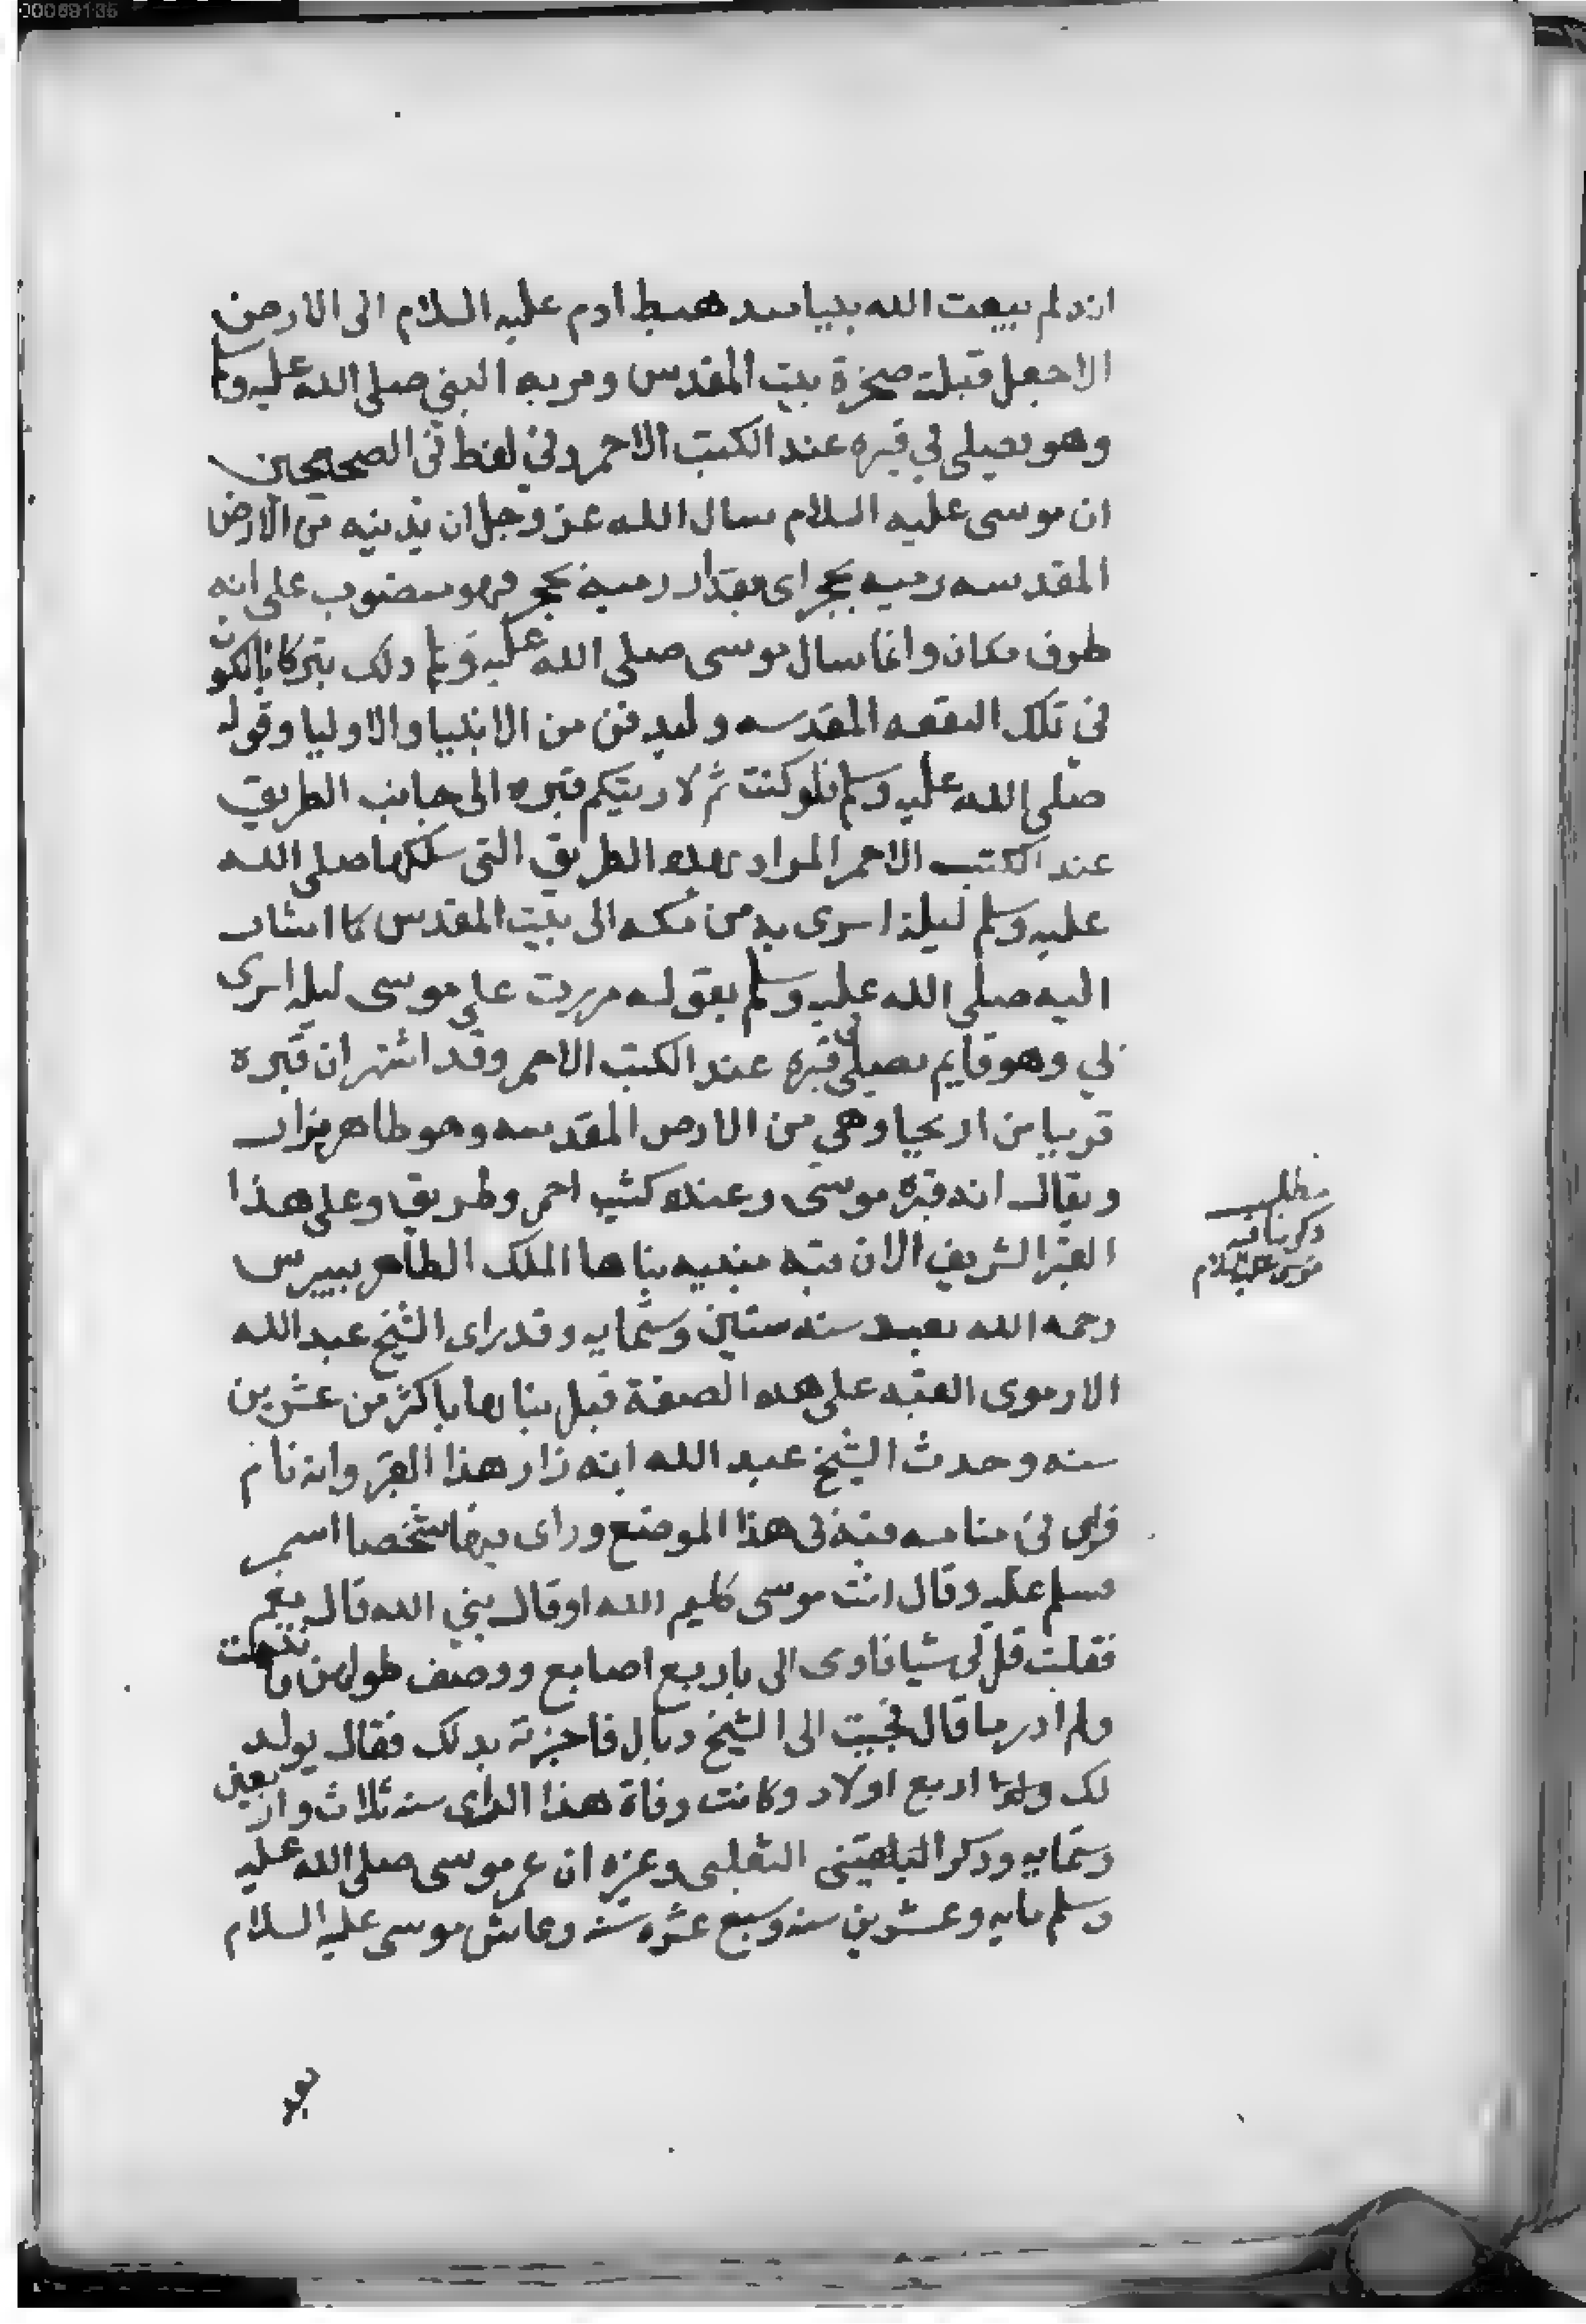 انه لم يبعث الله نبيا منذ هبط ادم عليه السلام الى الارض
الا جعل قبلته صخرة بيت المقدس ومر به النبي صلى الله عليه وسلم
وهو يصلي في قبره عند الكثيب الاحمر وفي لفظ في الصحيحين
ان موسى عليه السلام سال الله عز وجل ان يدنيه من الارض
المقدسه رميه بحجر اى مقدار رميه بحجر فهو منصوب على انه
ظرف مكان وانما سال موسى صلى الله عليه وسلم ذلك تبركا بالكون
في تلك البقعه المقدسه وليدفن من الانبيا والاوليا وقوله
صلى الله عليه وسلم فلو كنت ثم لاريتكم قبره الى جانب الطريق
عند الكثيب الاحمر المراد بهذه الطريق التي سلكها صلى الله
عليه وسلم ليلة اسرى به من مكه الى بيت المقدس كما اشار
اليه صلى الله عليه وسلم بقوله مررت على موسى ليله اسرى
بي وهو قايم يصلي في قبره عند الكثيب الاحمر وقد اشتهر ان قبره
قريبا من اريحيا وهي من الارض المقدسه وهو ظاهر يزار
ويقال انه قبره موسى وعنده كثيب احمر وطريق وعلى هذا
القبر الشريف الان قبه مبنيه بناها الملك الظاهر بيبرس
رحمه الله بعد سنه ستين وستمايه وقد راى الشيخ عبد الله
الارموى القبه على هذه الصفة قبل بنايها باكثر من عشرين
سنه وحدث الشيخ عبد الله انه زار هذا القبر وانه نام
فراى في منامه قبه في هذا الموضع وراى فيها شخصا اسمر
فسلم عليه وقال انت موسى كليم الله او قال نبي الله قال نعم
فقلت قل لي شيا فاوى الى باربع اصابع ووصف طولهن فانتبهت
ولم ادر ما قال فجيت الى الشيخ ديال فاخبرته بذلك فقال يولد
لك اربع اولاد وكانت وفاة هذا الراى سنه ثلاث واربعين
وستمايه وذكر البلقيني الثعلبي وغيره ان عمر موسى صلى الله عليه
وسلم مايه وعشرين سنه وسبع عشره سنه وعاش موسى عليه السلام
مطلب
ذكر بنا قبه
موسى عليه السلام
بعد